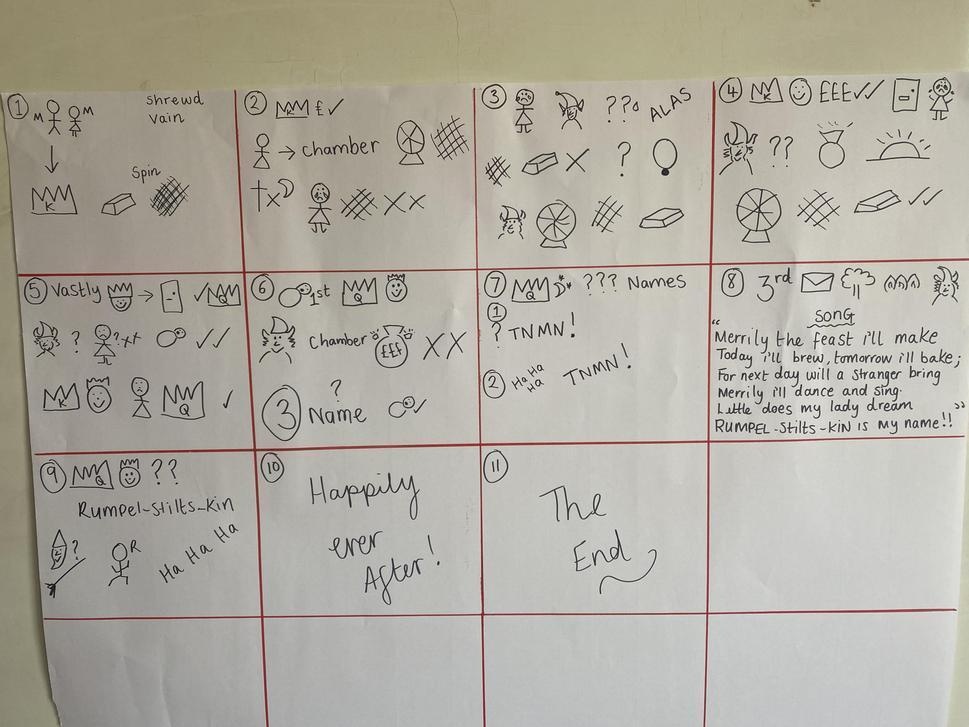 1
M M
shrewd
vain
Spin
K
2
K £ ✓
→ chamber
X
X X
3
? ? ALAS
X ?
4
K £££ ✓✓
??
✓✓
5 Vastly → ✓ Q
? ? x x ✓✓
K Q ✓
6 1st Q
Chamber £££ X X
?
3 Name ✓
7 Q ??? Names
1
? TNMN!
2 Ha Ha Ha TNMN!
8 3rd
SONG
"Merrily the feast i'll make
Today i'll brew, tomorrow i'll bake;
For next day will a stranger bring
Merrily i'll dance and sing.
Little does my lady dream
RUMPEL-Stilts-KiN is my name!!"
9 Q ??
Rumpel-stilts-kin
? R Ha Ha Ha
10
Happily
ever
After!
11
The
End